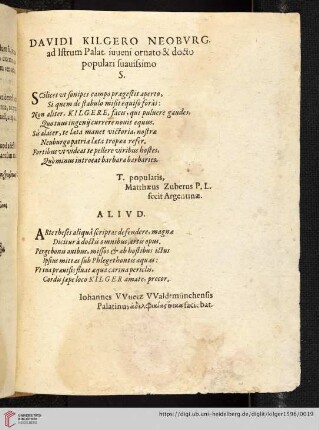 DAVIDI KILGERO NEOBVRG.
ad Istrum Palat. iuueni ornato & docto
populari suauissimo
S.
SCilicet vt sonipes campo prægestit aperto,
Si quem de stabulo misit equiso foràs:
Non aliter, KILGERE, facis, que puluere gaudes,
Qua tuus ingenij currere nouit equus.
Sis alacer, te lata manet victoria, nostræ
Neuburgo patriæ lata tropæa refer,
Fortibus vt videat te pellere viribus hostes,
Quò minus introeat barbara barbaries.
T. popularis,
Matthæus Zuberus P. L.
fecit Argentinæ.
ALIVD.
ARte theses aliquâ scriptas defendere, magnæ
Dicitur à doctis omnibus, artis opus,
Pergebonis auibus, missos & ab hostibus ictus
Ipsius mittas sub Phlegethontis aquas:
Vt tua præsens fluat æqua carina periclis,
Cordis sæpe loco KILGER amate, precor.
Iohannes VVurtz VValdtmünchensis
Palatinus ἀδελφικῆς faciebat.
https://digi.ub.uni-heidelberg.de/diglit/kilger1596/0019
UNIVERSITÄTS-
BIBLIOTHEK
HEIDELBERG